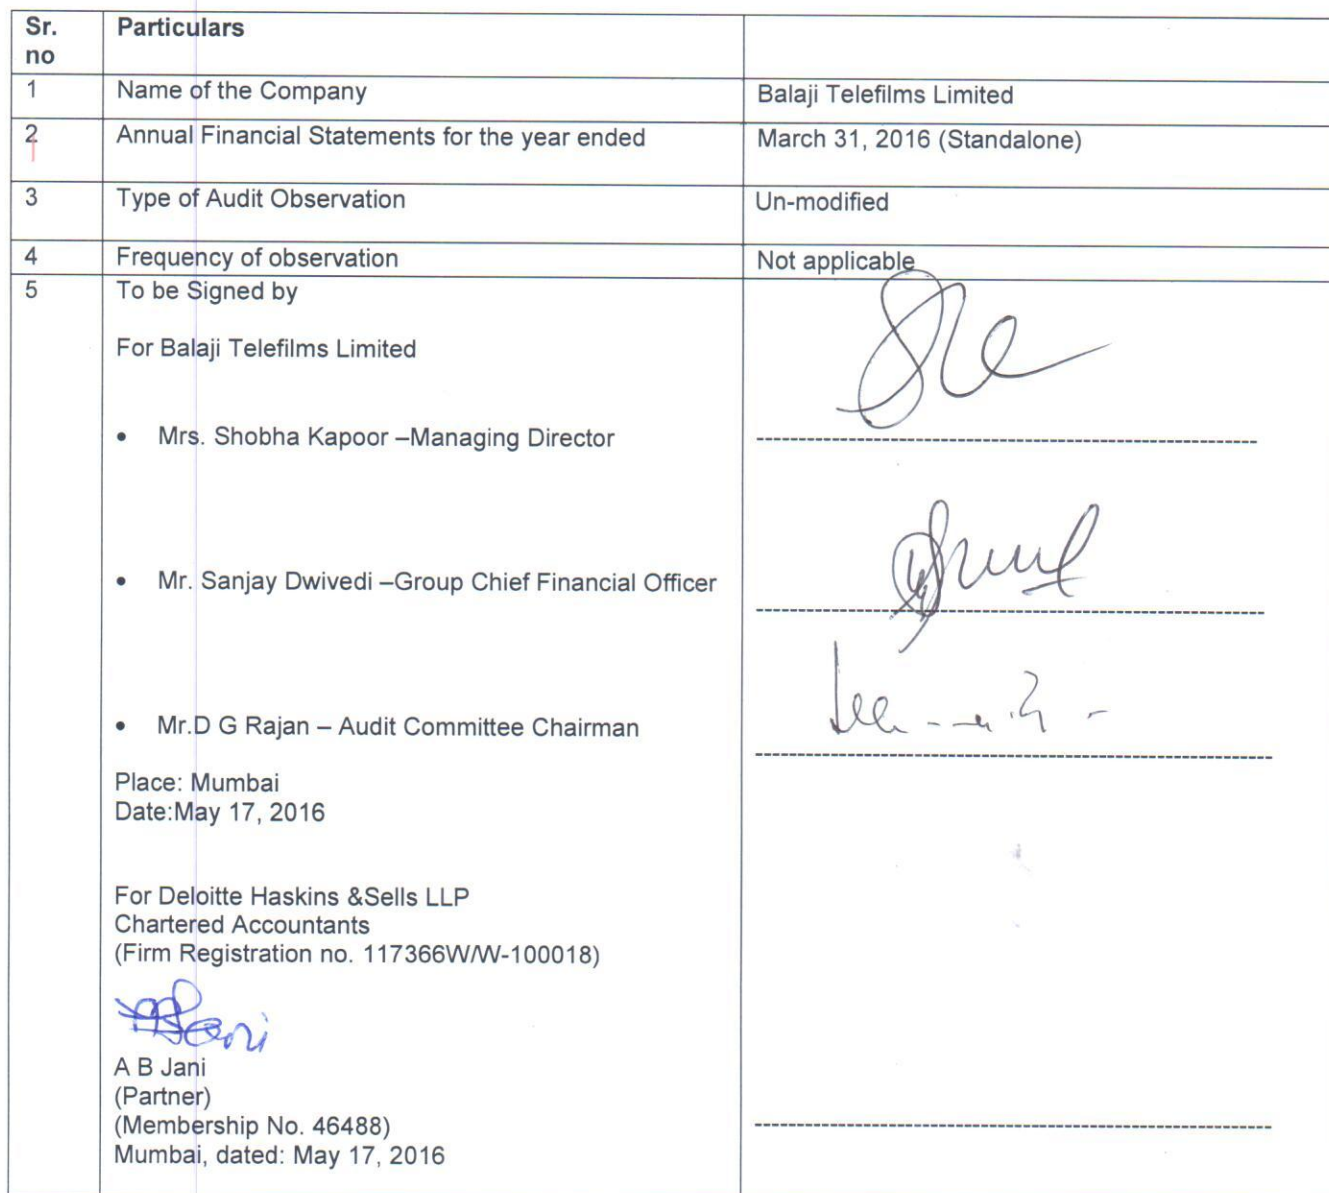 Sr. no
Particulars
1
Name of the Company
Balaji Telefilms Limited
2
Annual Financial Statements for the year ended
March 31, 2016 (Standalone)
3
Type of Audit Observation
Un-modified
4
Frequency of observation
Not applicable
5
To be Signed by
For Balaji Telefilms Limited
• Mrs. Shobha Kapoor –Managing Director
• Mr. Sanjay Dwivedi –Group Chief Financial Officer
• Mr.D G Rajan – Audit Committee Chairman
Place: Mumbai
Date:May 17, 2016
For Deloitte Haskins &Sells LLP
Chartered Accountants
(Firm Registration no. 117366W/W-100018)
A B Jani
(Partner)
(Membership No. 46488)
Mumbai, dated: May 17, 2016